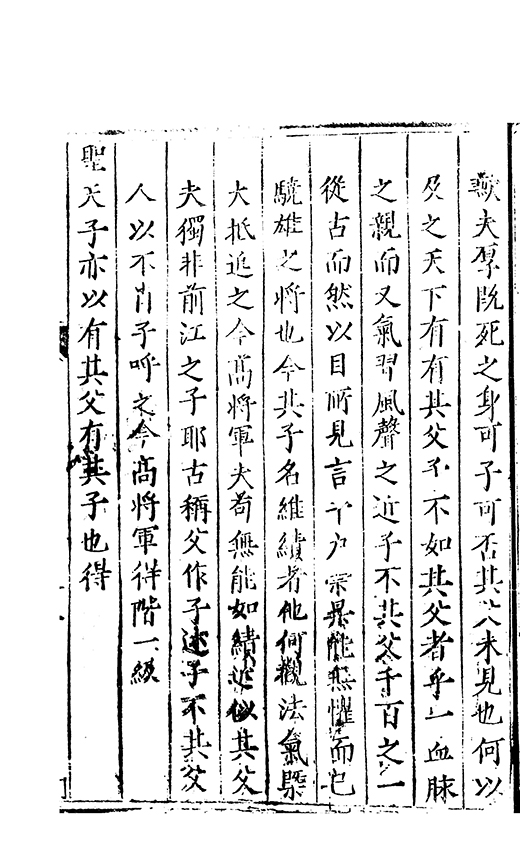 歟夫厚既死之身可子可否其父未見也何以
及之天下有有其父子不如其父者乎一血脉
之親而又氣習風聲之近子不其父千百之一
從古而然以目所見言千户 無懼而已
驍雄之將也今其子名維績者他何觀法氣槩
大抵近之今髙將軍夫苟無能如績近似其父
夫獨非前江之子耶古稱父作子述子不其父
人以不肖子呼之今髙將軍得階一級
聖天子亦以有其父有其子也得